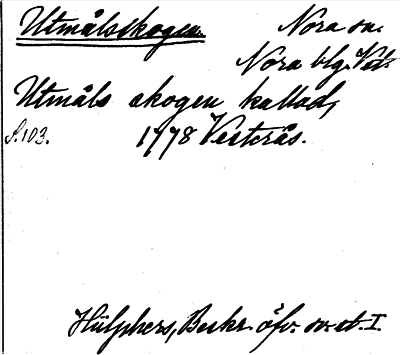 Utmålsskogen.
Nora sn.
Nora blg. Vst.
Utmåls skogen kallad,
S. 103. 1778 Vesterås.
Hülphers, Beskr. öfv. sv. st. I.